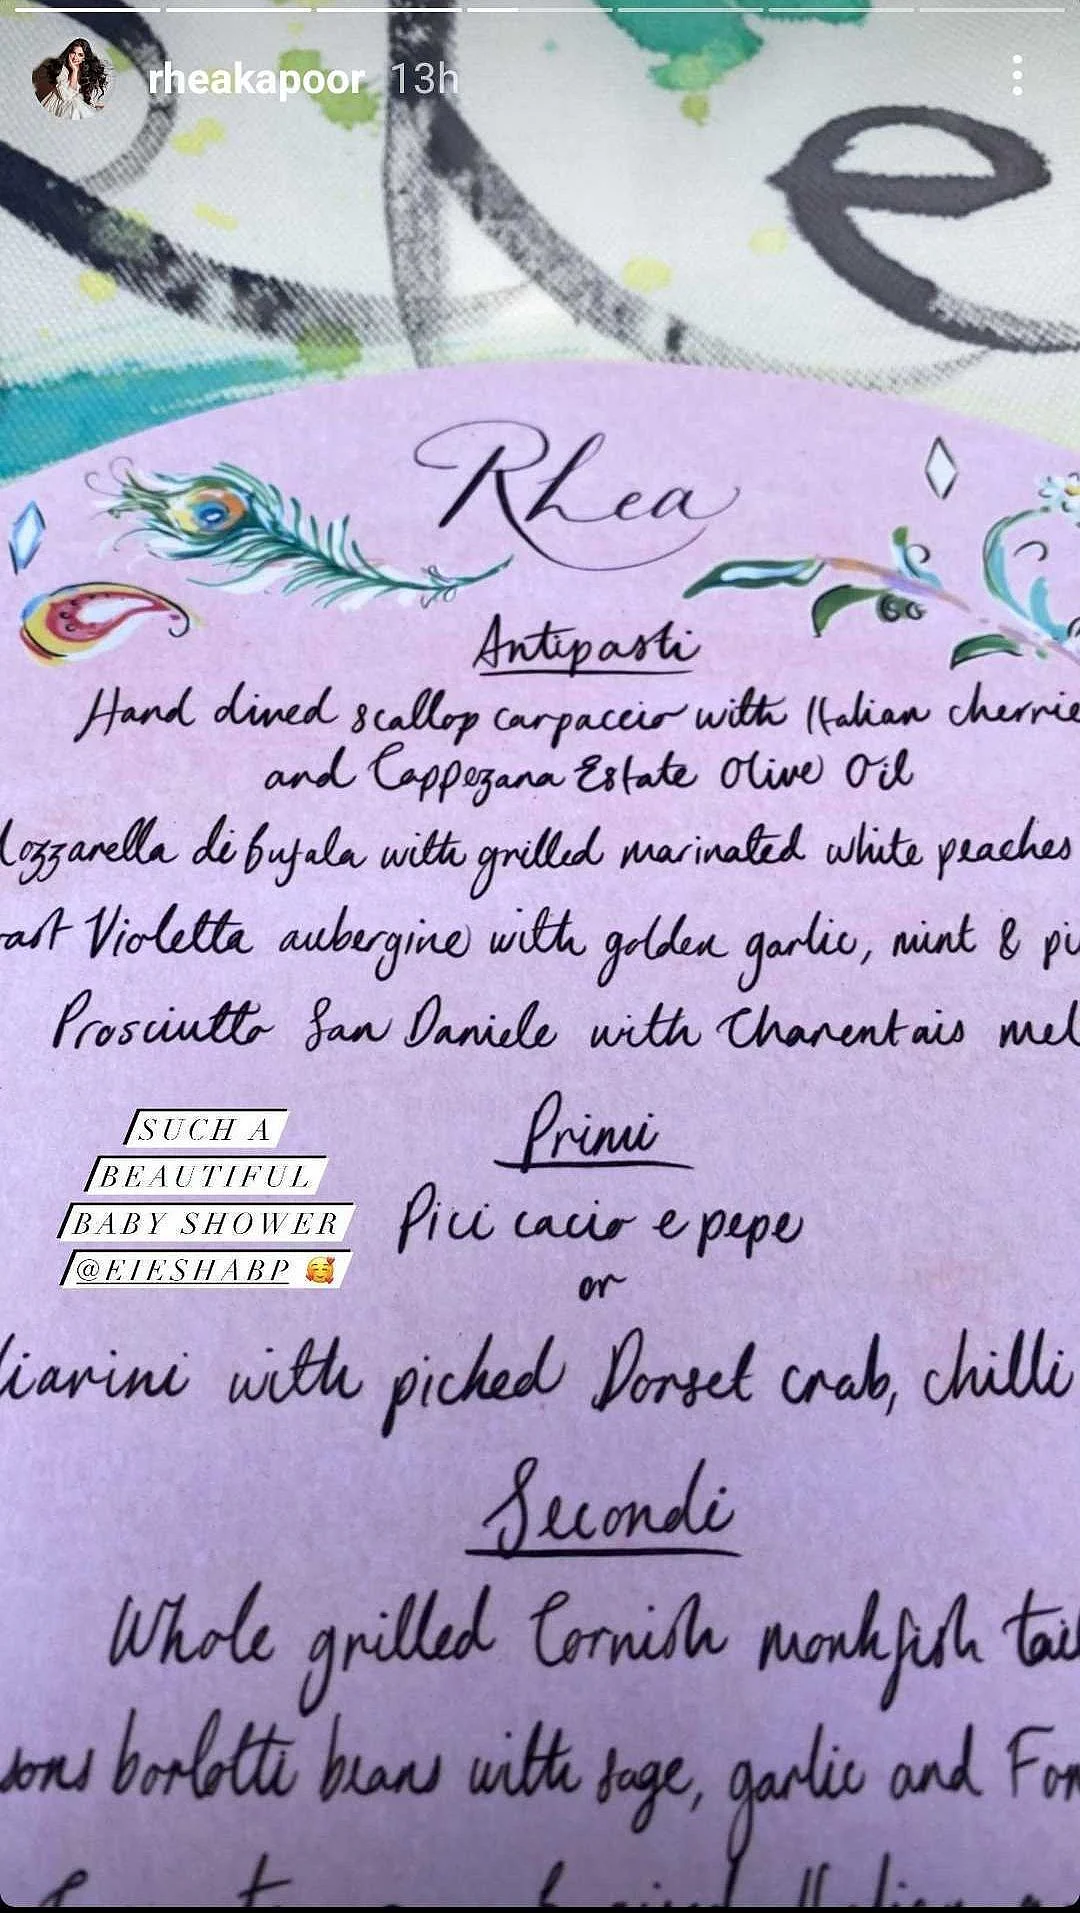 rheakapoor 13h
Rhea
Antipasti
Hand dived scallop carpaccio with Italian cherrie
and Cappezana Estate Olive Oil
ozzarella di bufala with grilled marinated white peaches
ast Violetta aubergine with golden garlic, mint & pi
Prosciutto San Daniele with Charentais mel
Primi
SUCH A
BEAUTIFUL
BABY SHOWER
@EIESHABP 🥰
Pici cacio e pepe
or
iarini with picked Dorset crab, chilli
Secondi
Whole grilled Cornish monkfish tail
sons borlotti beans with sage, garlic and For